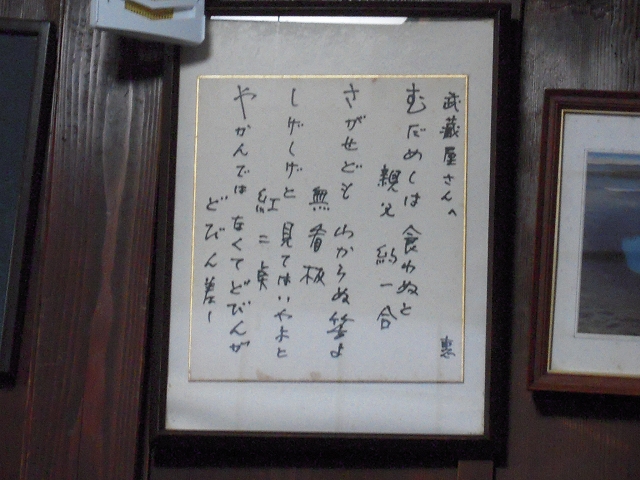 武蔵屋さんへ
恵
むだめしは 食わぬと
親父 約一合
さがせども わからぬ筈よ
無看板
しげしげと 見てはいやよと
紅二点
やかんでは なくてどびんが
どびん差ー